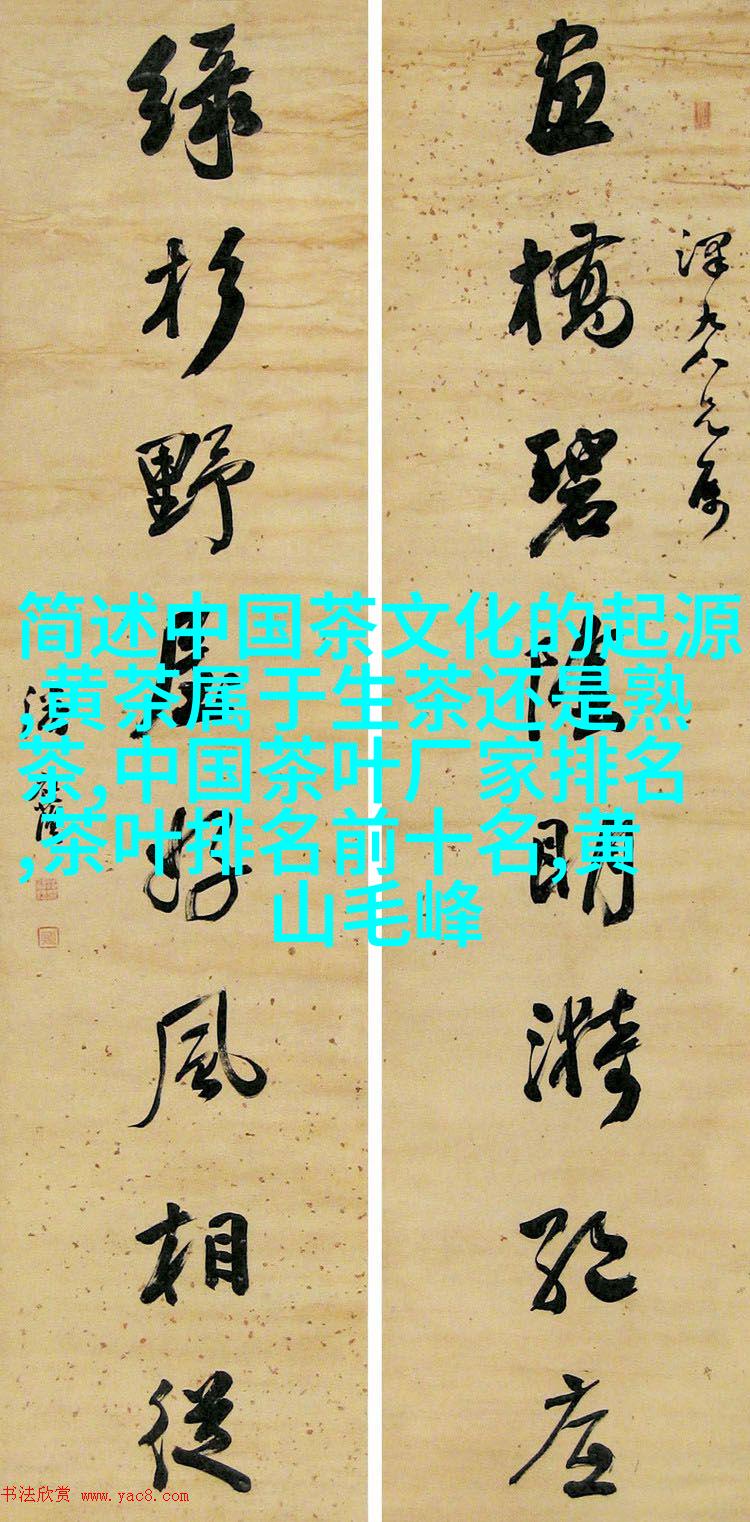 畫橋碧陰明漪絕底
綠杉野屋好風相從
简述中国茶文化的起源
,黄茶属于生茶还是熟
茶,中国茶叶厂家排名
,茶叶排名前十名,黄
山毛峰
书法欣赏 www.yac8.com